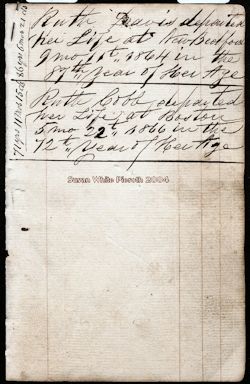 Ruth Davis departed
her Life at New Bedford
9 mo 11th 1864 in the
87th year of Her Age
Ruth Cobb departed
her Life at Boston
5 mo 22th 1866 in the
72th year of Her Age
Susan White Pieroth 2004